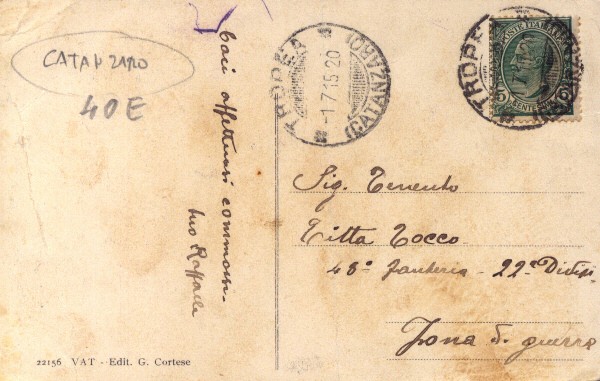 CATANZARO
40E
Baci affettuosi commossi.
tuo Raffaele
TROPEA
(CATANZARO)
-1.7.15.20
POSTE ITALIANE
5 5
CENTESIMI
TROPEA
(CATANZARO)
Sig. Tenente
Titta Tocco
48° fanteria - 22ª Divis.
Zona di guerra
22156 VAT - Edit. G. Cortese